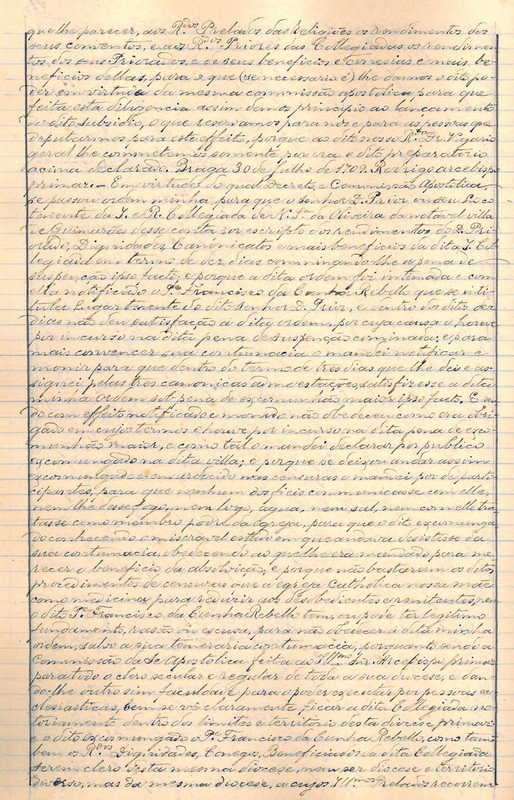 que lhe parecer, aos R.dos Prelados das Religiões os rendimentos dos
seus conventos, e aos R.dos Priores das Collegiadas os rendimen-
tos dos seus Priorados, e de seus beneficios Ecnesias e mais be-
neficios dellas, para o que (sendo necessario é) lhe damos o dito po-
der em virtude da mesma commissão apostolica para que
feita esta diligencia assim demos principio ao lançamento
do dito subsidio, o que reservamos para nós e para as pessoas que
deputarmos para este effeito, porque ao dito nosso R.do Dr. Vigario
geral lhe commettemos sómente por ora o dito preparatorio
acima declarado. Braga 30 de Julho de 1709. Rodrigo arcebispo
primaz. — Em virtude do qual Decreto, e Commissão Apostolica,
se passou ordem minha para que o senhor D. Prior ou seu Loco-
tenente da I. e R. Collegiada de N. S.ra da Oliveira da notavel villa
de Guimarães desse conta por escripto dos rendimentos do D. Prio-
rado, Dignidades, Canonicatos e mais beneficios da dita I. Col-
legiada em termo de dez dias comminando-lhe a pena de
suspenção ipso facto; e porque a dita ordem foi intimada e com
ella notificado o P.e Francisco da Cunha Rebello que se inti-
tulou Lugartenente do dito senhor D. Prior, e dentro dos ditos dez
dias não deu satisfação á dita ordem, por cuja causa o houve
por incurso na dita pena de suspenção cominada; e para
mais convencer sua contumacia o mandei notificar e
monir para que dentro do termo de tres dias que lhe dei e as-
signei pelas tres canonicas admoestações, satisfizesse a dita
minha ordem sob pena de excommunhão maior ipso facto. E sen-
do com effeito notificado e monido não obedeceu como era obri-
gado em cujos termos o houve por incurso na dita pena de exco-
munhão maior, e como tal o mandei declarar por publico
excomungado na dita villa; e porque se deixou andar assim
excomungado e endurecido nas censuras o mandei por de parti-
cipantes, para que nenhum dos fieis communicasse com elle,
nem lhe desse fogo, nem logo, agua, nem sal, nem com elle tra-
tasse como membro podre da Egreja, para que o dito excomunga-
do conhecendo o miseravel estado em que andava desistisse da
sua contumacia, obedecendo ao que lhe era mandado, para me-
recer o beneficio da absolvição; e porque não bastaram os ditos
procedimentos de censuras que a Egreja Catholica nossa mãe
como medicinas para reduzir aos desobedientes e renitentes, nem
o dito P.e Francisco da Cunha Rebello tem, ou pode ter legitimo
fundamento, rasão ou escusa, para não obedecer á dita minha
ordem, salvo a pura temeraria contumacia, porquanto sendo a
Commissão da Sé Apostolica feita ao Ill.mo Snr. Arcebispo primaz
para todo o clero secular e regular de toda a sua diocese, e dan-
do-lhe outro sim faculdade para o poder executar por pessoas ec-
clesiasticas, bem se vê claramente, ficar a dita Collegiada no-
toriamente dentro dos limites e territorio desta diocese, primaz
e o dito excomungado o P.e Francisco da Cunha Rebello, como tam-
bem os R.dos Dignidades, Conegos, Beneficiados da dita Collegiada
serem clero desta mesma diocese, nem ser diocese e territorio
diverso, mas da mesma diocese, a cujos Ill.mos Prelados recorrem